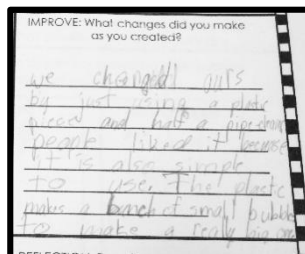 IMPROVE: What changes did you make
as you created?
we changed ours
by just using a plastic
piece and half a pipe
people liked it because
it is also simple
to use. The plastc
makes a bunch of small bubble
to make a realy big one